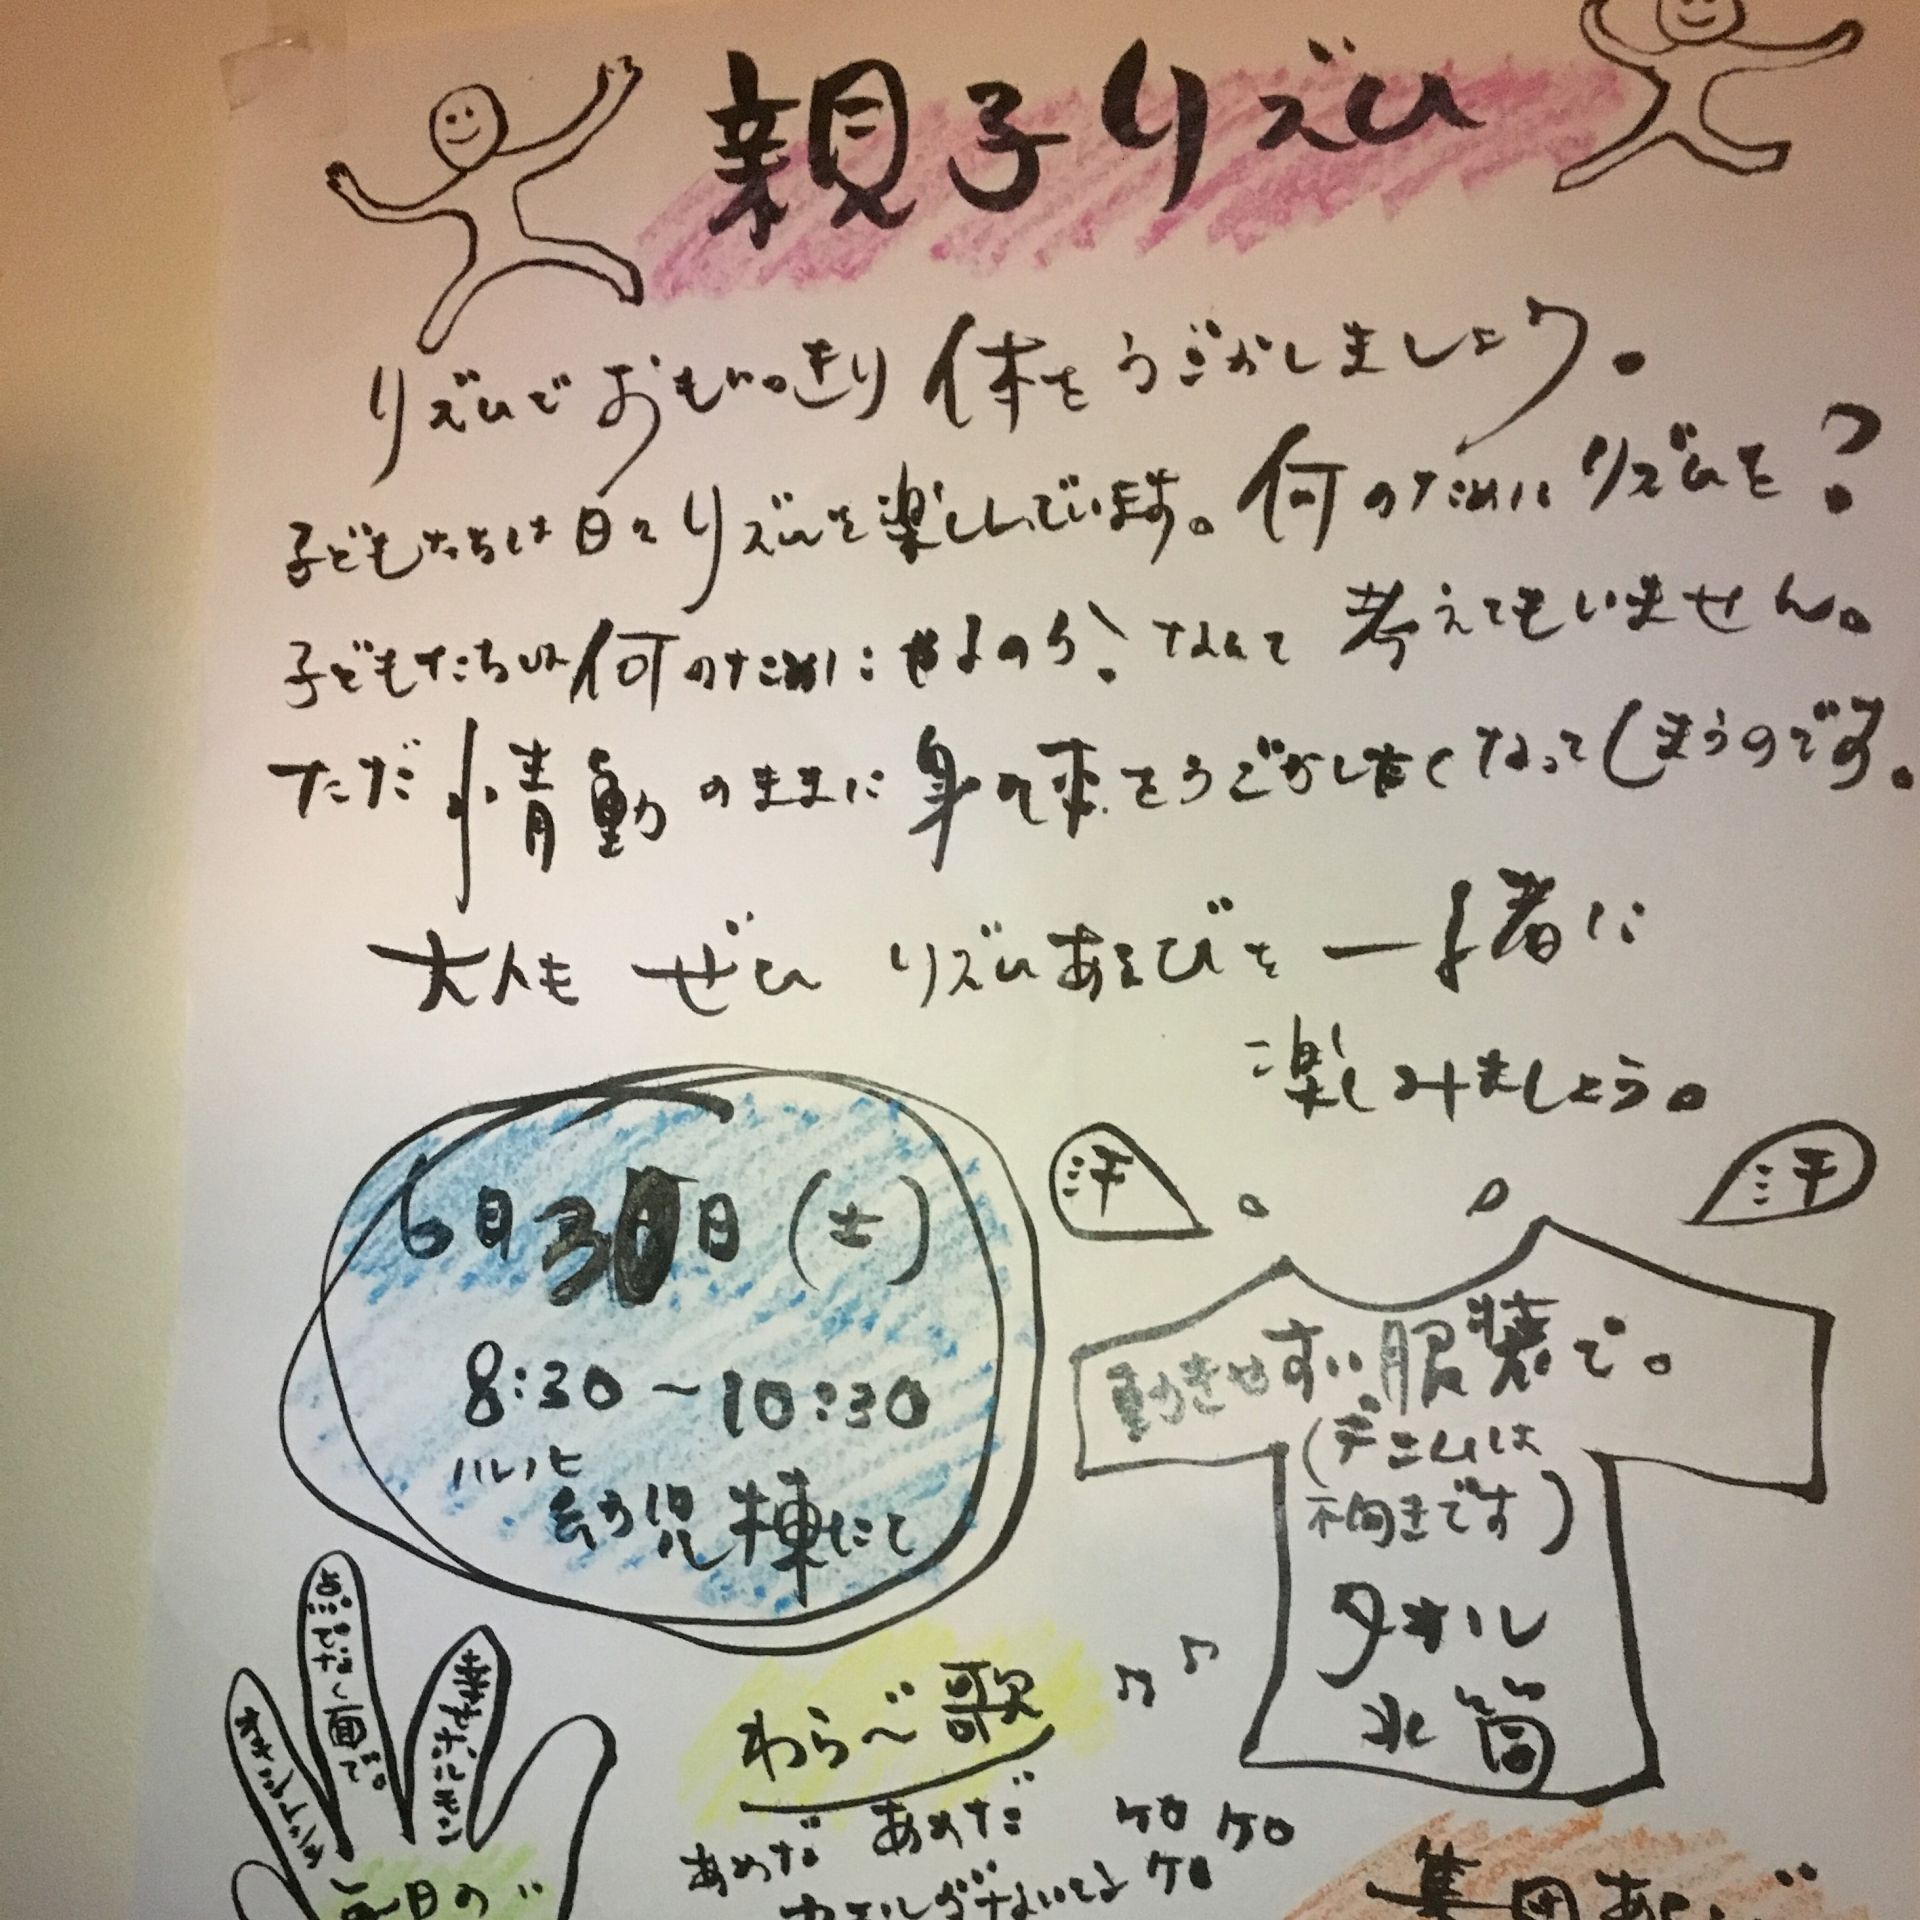 親子リズム
リズムでおもいっきり体をうごかしましょう。
子どもたちは日々リズムを楽しんでいます。何のためにリズムを?
子どもたちは何のためにやるのか?なんて考えてもいません。
ただ情動のままに身体をうごかしたくなってしまうのです。
大人もぜひリズムあそびを一緒に
楽しみましょう。
汗
汗
6月30日(土)
8:30〜10:30
ハレルヒ
幼児棟にて
動きやすい服装で。
(デニムは
不向きです)
タオル
水筒
点でなく面で。
幸せホルモン
わらべ歌
あめだ あめだ ケロ ケロ
カエルがないてる ケロ
毎日の
集団あそび